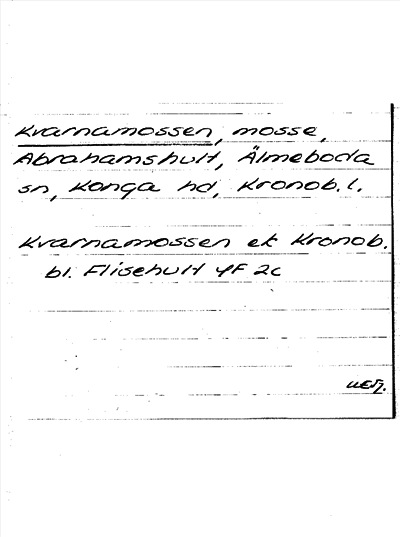 Kvarnamossen, mosse,
Abrahamshult, Älmeboda
sn, Konga hd, Kronob. l.
Kvarnamossen ek Kronob.
bl. Flisehult 4F 2c